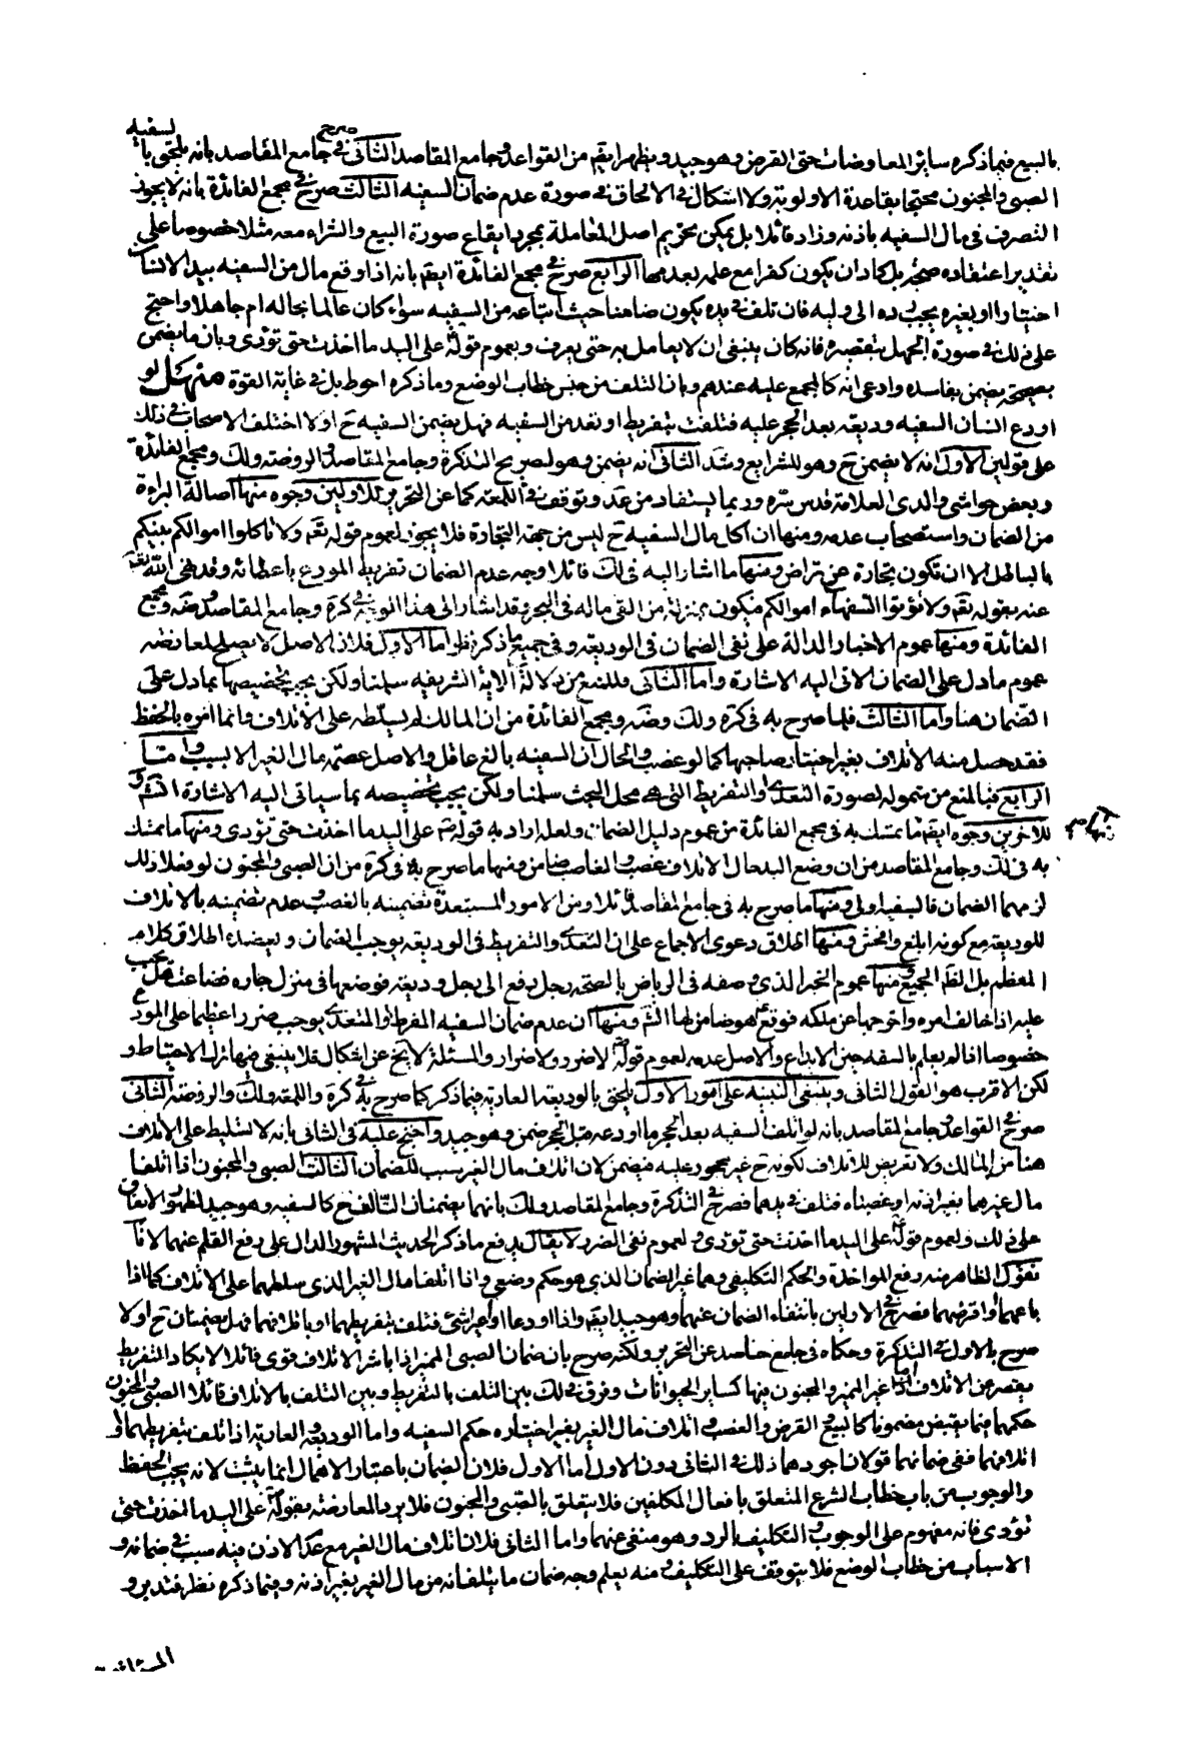 بالبيع فيما ذكره ساير المعاوضات حتى القرض وهو جيد ويظهر ايضم من القواعد وجامع المقاصد الثانى صرح فى جامع المقاصد بانه يلحق بالسفيه
الصبى والمجنون محتجا بقاعدة الاولوية ولا اشكال فى الالحاق فى صورة عدم ضمان السفيه الثالث صرح فى مجمع الفائدة بانه لا يجوز
التصرف فى مال السفيه باذنه وزاد قائلا بل يمكن تحريم اصل المعاملة بمجرد ايقاع صورة البيع والشراء معه مثلا خصوصا على
تقدير اعتقاده صحته بل كاد ان يكون كفرا مع علمه بعدمها الرابع صرح فى مجمع الفائدة ايضم بانه اذا وقع مال من السفيه بيد الانسان
اختيارا او بغيره يجب رده الى وليه فان تلف فى يده يكون ضامنا حيث ابتاعه من السفيه سواء كان عالما بحاله ام جاهلا واحتج
على ذلك فى صورة الجهل بتقصيره فانه كان ينبغى ان لا يعامل به حتى يعرف وبعموم قوله على اليد ما اخذت حتى تؤدى وبان ما يضمن
بصحته يضمن بفاسده وادعى انه كالمجمع عليه عندهم وبان التلف من جنس خطاب الوضع وما ذكره احوط بل فى غاية القوة منهل لو
اودع انسان السفيه وديعة بعد الحجر عليه فتلفت بتفريط او تعد من السفيه فهل يضمن السفيه ح او لا اختلف الاصحاب فى ذلك
على قولين الاول انه لا يضمن ح وهو للشرايع وشد الثانى انه يضمن وهو لصريح التذكرة وجامع المقاصد والروضة ولك ومجمع الفائدة
وبعض حواشى والدى العلامة قدس سره وربما يستفاد من عد وتوقف فى اللمعة كما عن التحرير للاولين وجوه منها اصالة البراءة
من الضمان واستصحاب عدمه ومنها ان اكل مال السفيه ح ليس من جهة التجارة فلا يجوز لعموم قوله تقم ولا تاكلوا اموالكم بينكم
بالباطل الا ان تكون تجارة عن تراض ومنها ما اشار اليه فى لك قائلا وجه عدم الضمان تفريط المودع باعطائه وقد نهى الله تعم
عنه بقوله تقم ولا تؤتوا السفهاء اموالكم فيكون بمنزلة من القى ماله فى البحر وقد اشار الى هذا الوجه فى كرة وجامع المقاصد وضه ومجمع
الفائدة ومنها عموم الاخبار الدالة على نفى الضمان فى الوديعة وفى جميع ما ذكر نظر اما الاول فلان الاصل لا يصلح لمعارضة
عموم ما دل على الضمان الاتى اليه الاشارة واما الثانى فللمنع من دلالة الاية الشريفه سلمنا ولكن يجب تخصيصها بما دل على
الضمان هنا واما الثالث فلما صرح به فى كرة ولك وضه ومجمع الفائدة من ان المالك لم يسلطه على الاتلاف وانما امره بالحفظ
فقد حصل منه الاتلاف بغير اختيار صاحبها كما لو غصب والحال ان السفيه بالغ عاقل والاصل عصمة مال الغير الا بسبب واما
الرابع فبالمنع من شموله لصورة التعدى والتفريط التى هى محل البحث سلمنا ولكن يجب تخصيصه بما سياتى اليه الاشارة انشم و
للاخرين وجوه ايضم ما تمسك به فى مجمع الفائدة من عموم دليل الضمان ولعله اراد به قوله على اليد ما اخذت حتى تؤدى ومنها ما تمسك
به فى لك وجامع المقاصد من ان وضع اليد حال الاتلاف غصب والغاصب ضامن ومنها ما صرح به فى كرة من ان الصبى والمجنون لو فعلا ذلك
لزمهما الضمان فالسفيه اولى ومنها ما صرح به فى جامع المقاصد قائلا ومن الامور المستبعدة تضمينه بالغصب عدم تضمينه بالاتلاف
للوديعة مع كونه ابلغ وافحش ومنها اطلاق دعوى الاجماع على ان التعدى والتفريط فى الوديعة يوجب الضمان ويعضده اطلاق كلام
المعظم بل الظم الجميع ومنها عموم الخبر الذى وصفه فى الرياض بالصحة رجل دفع الى رجل وديعة فوضعها فى منزل جاره فضاعت هل يجب
عليه اذا خالف امره واخرجها عن ملكه فوقع هو ضامن لها انشم ومنها ان عدم ضمان السفيه المفرط والمتعدى يوجب ضررا عظيما على المودع
خصوصا اذا لم يعلم بالسفه حين الايداع والاصل عدمه لعموم قوله لا ضرر ولا ضرار والمسئلة لا يخ عن اشكال فلا ينبغى فيها ترك الاحتياط و
لكن الاقرب هو القول الثانى وينبغى التنبيه على امور الاول يلحق بالوديعة العارية فيما ذكر كما صرح به فى كرة واللمعة ولك والروضة الثانى
صرح فى القواعد وجامع المقاصد بانه لو اتلف السفيه بعد الحجر ما اودعه قبل الحجر ضمن وهو جيد واحتج عليه فى الثانى بانه لا تسليط على الاتلاف
هنا من المالك ولا تعريض للاتلاف لكونه ح غير محجور عليه فيضمن لان اتلاف مال الغير سبب للضمان الثالث الصبى والمجنون اذا اتلفا
مال غيرهما بغير اذنه او غصبناه فتلف فى يدهما فصرح فى التذكرة وجامع المقاصد ولك بانهما يضمنان التالف ح كالسفيه وهو جيد لظهور الاتفاق
على ذلك ولعموم قوله على اليد ما اخذت حتى تؤدى ولعموم نفى الضرر ولا يقال يدفع ما ذكر الحديث المشهور الدال على رفع القلم عنهما لانا
نقول الظاهر منه رفع المواخذة والحكم التكليفى وهما غير الضمان الذى هو حكم وضعى واذا اتلفا مال الغير الذى سلطهما على الاتلاف كما اذا
باعهما او اقرضهما فصرح فى الاولين بانتفاء الضمان عنهما وهو جيد ايضم واذا اودعا او اعيرا شئ فتلف بتفريطهما او باتلافهما فهل يضمنان ح او لا
صرح بالاول فى التذكرة وحكاه فى جامع المقاصد عن التحرير ولكنه صرح بان ضمان الصبى المميز اذا باشر الاتلاف قوى قائلا لا يكاد التفريط
يقصر عن الاتلاف اما غير المميز والمجنون فيها كساير الحيوانات وفرق فى لك بين التلف بالتفريط وبين التلف بالاتلاف قائلا الصبى والمجنون
حكمهما فيما يقبض مضمونا كالبيع والقرض والغصب واتلاف مال الغير بغير اختياره حكم السفيه واما الوديعة والعارية اذا تلف بتفريطهما او
اتلافهما ففى ضمانهما قولان اجودهما ذلك فى الثانى دون الاول اما الاول فلان الضمان باعتبار الاهمال انما يثبت لانه يجب الحفظ
والوجوب من باب خطاب الشرع المتعلق بافعال المكلفين فلا يتعلق بالصبى والمجنون فلا يرد المعارضة بقوله على اليد ما اخذت حتى
تؤدى فانه مفهوم على الوجوب والتكليف بالرد وهو منفى عنهما واما الثانى فلان اتلاف مال الغير مع عدم الاذن فيه سبب فى ضمانه و
الاسباب من خطاب الوضع فلا يتوقف على التكليف ومنه يعلم وجه ضمان ما يتلفانه من مال الغير بغير اذنه وفيما ذكره نظر فتدبر و